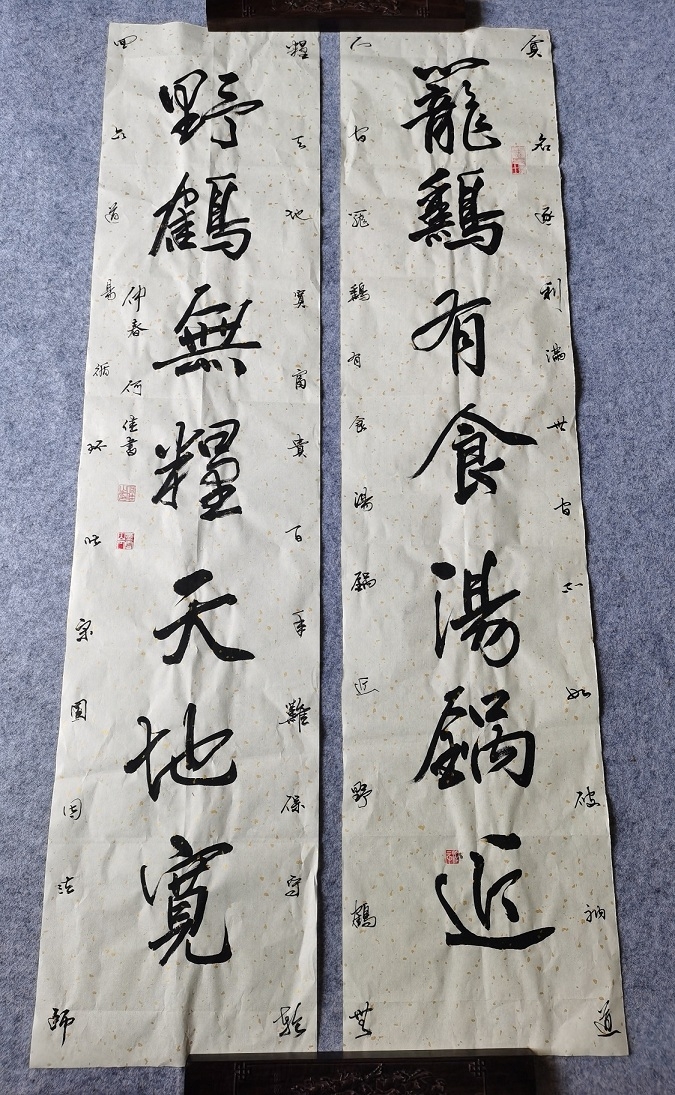 貪名逐利滿世間不如破衲道
籠鷄有食湯鍋近
人閒籠鷄有食湯鍋近野鶴無
糧天地寬富貴百年難保守輪
野鶴無糧天地寬
仲春 何佳書
回六道易循環 宗圓因法師